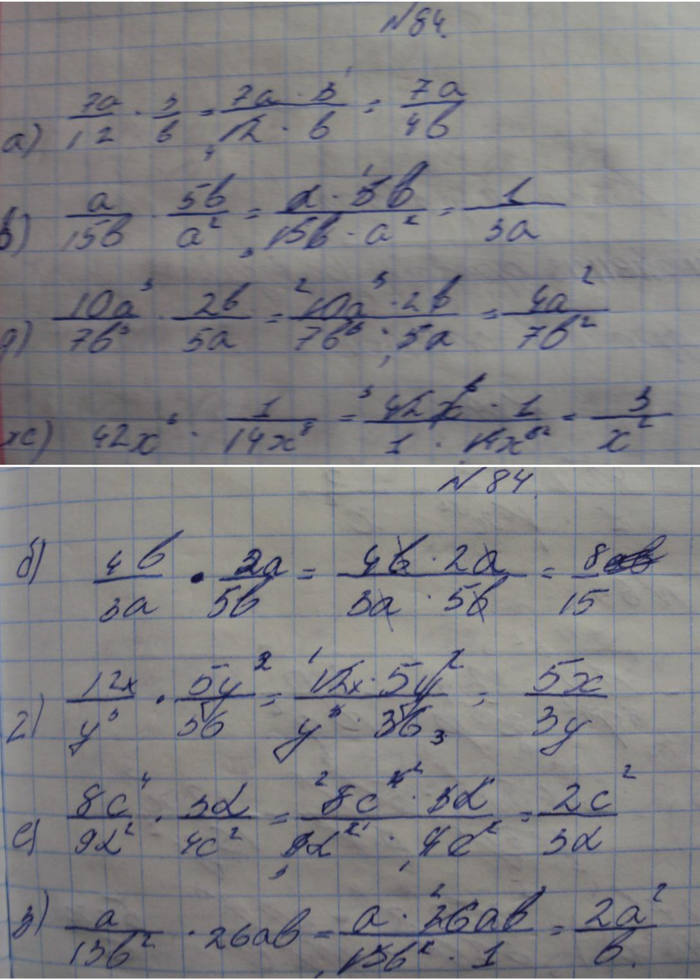 №84.
а) 7a/12 · 3/b = 7a · 3/12 · b = 7a/4b
в) a/15b · 5b/a² = a · 5b/15b · a² = 1/3a
д) 10a³/7b³ · 2b/5a = 10a³ · 2b/7b³ · 5a = 4a²/7b²
ж) 42x⁶ · 1/14x⁸ = 42x⁶ · 1/1 · 14x⁸ = 3/x²
№84.
б) 4b/3a · 2a/5b = 4b · 2a/3a · 5b = 8/15
г) 12x/y³ · 5y²/36 = 12x · 5y²/y³ · 36 = 5x/3y
е) 8c⁴/9d² · 3d/4c² = 8c⁴ · 3d/9d² · 4c² = 2c²/3d
з) a/13b² · 26ab = a · 26ab/13b² · 1 = 2a²/b.